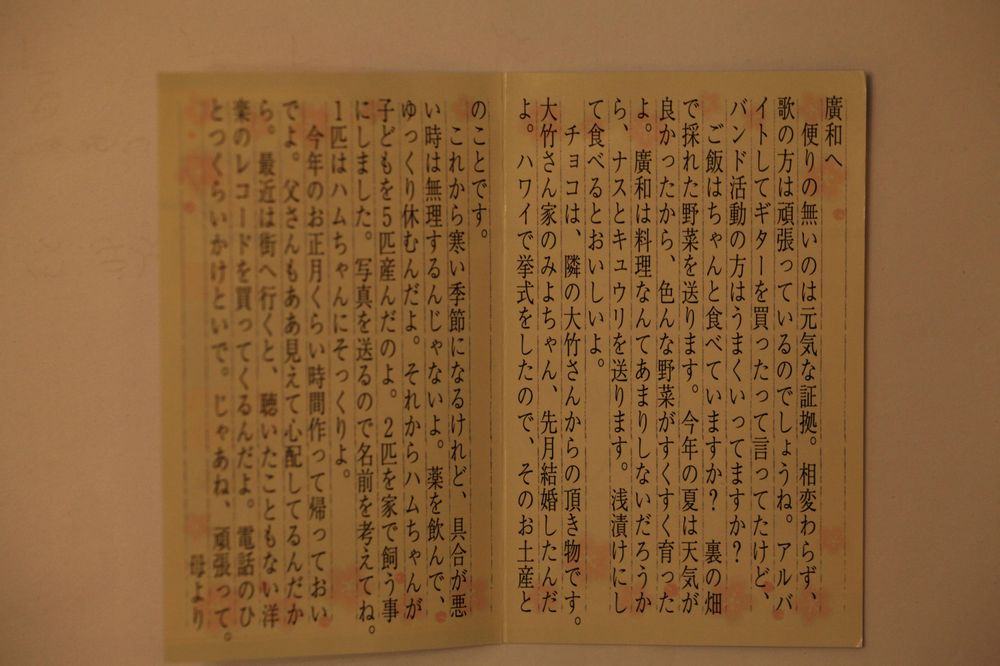 廣和へ
便りの無いのは元気な証拠。相変わらず、
歌の方は頑張っているのでしょうね。アルバ
イトしてギターを買ったって言ってたけど、
バンド活動の方はうまくいってますか?
ご飯はちゃんと食べていますか? 裏の畑
で採れた野菜を送ります。今年の夏は天気が
良かったから、色んな野菜がすくすく育った
よ。廣和は料理なんてあまりしないだろうか
ら、ナスとキュウリを送ります。浅漬けにし
て食べるとおいしいよ。
チョコは、隣の大竹さんからの頂き物です。
大竹さん家のみよちゃん、先月結婚したんだ
よ。ハワイで挙式をしたので、そのお土産と
のことです。
これから寒い季節になるけれど、具合が悪
い時は無理するんじゃないよ。薬を飲んで、
ゆっくり休むんだよ。それからハムちゃんが
子どもを5匹産んだのよ。2匹を家で飼う事
にしました。写真を送るので名前を考えてね。
1匹はハムちゃんにそっくりよ。
今年のお正月くらい時間作って帰っておい
でよ。父さんもああ見えて心配してるんだか
ら。最近は街へ行くと、聴いたこともない洋
楽のレコードを買ってくるんだよ。電話のひ
とつくらいかけといで。じゃあね、頑張って。
母より